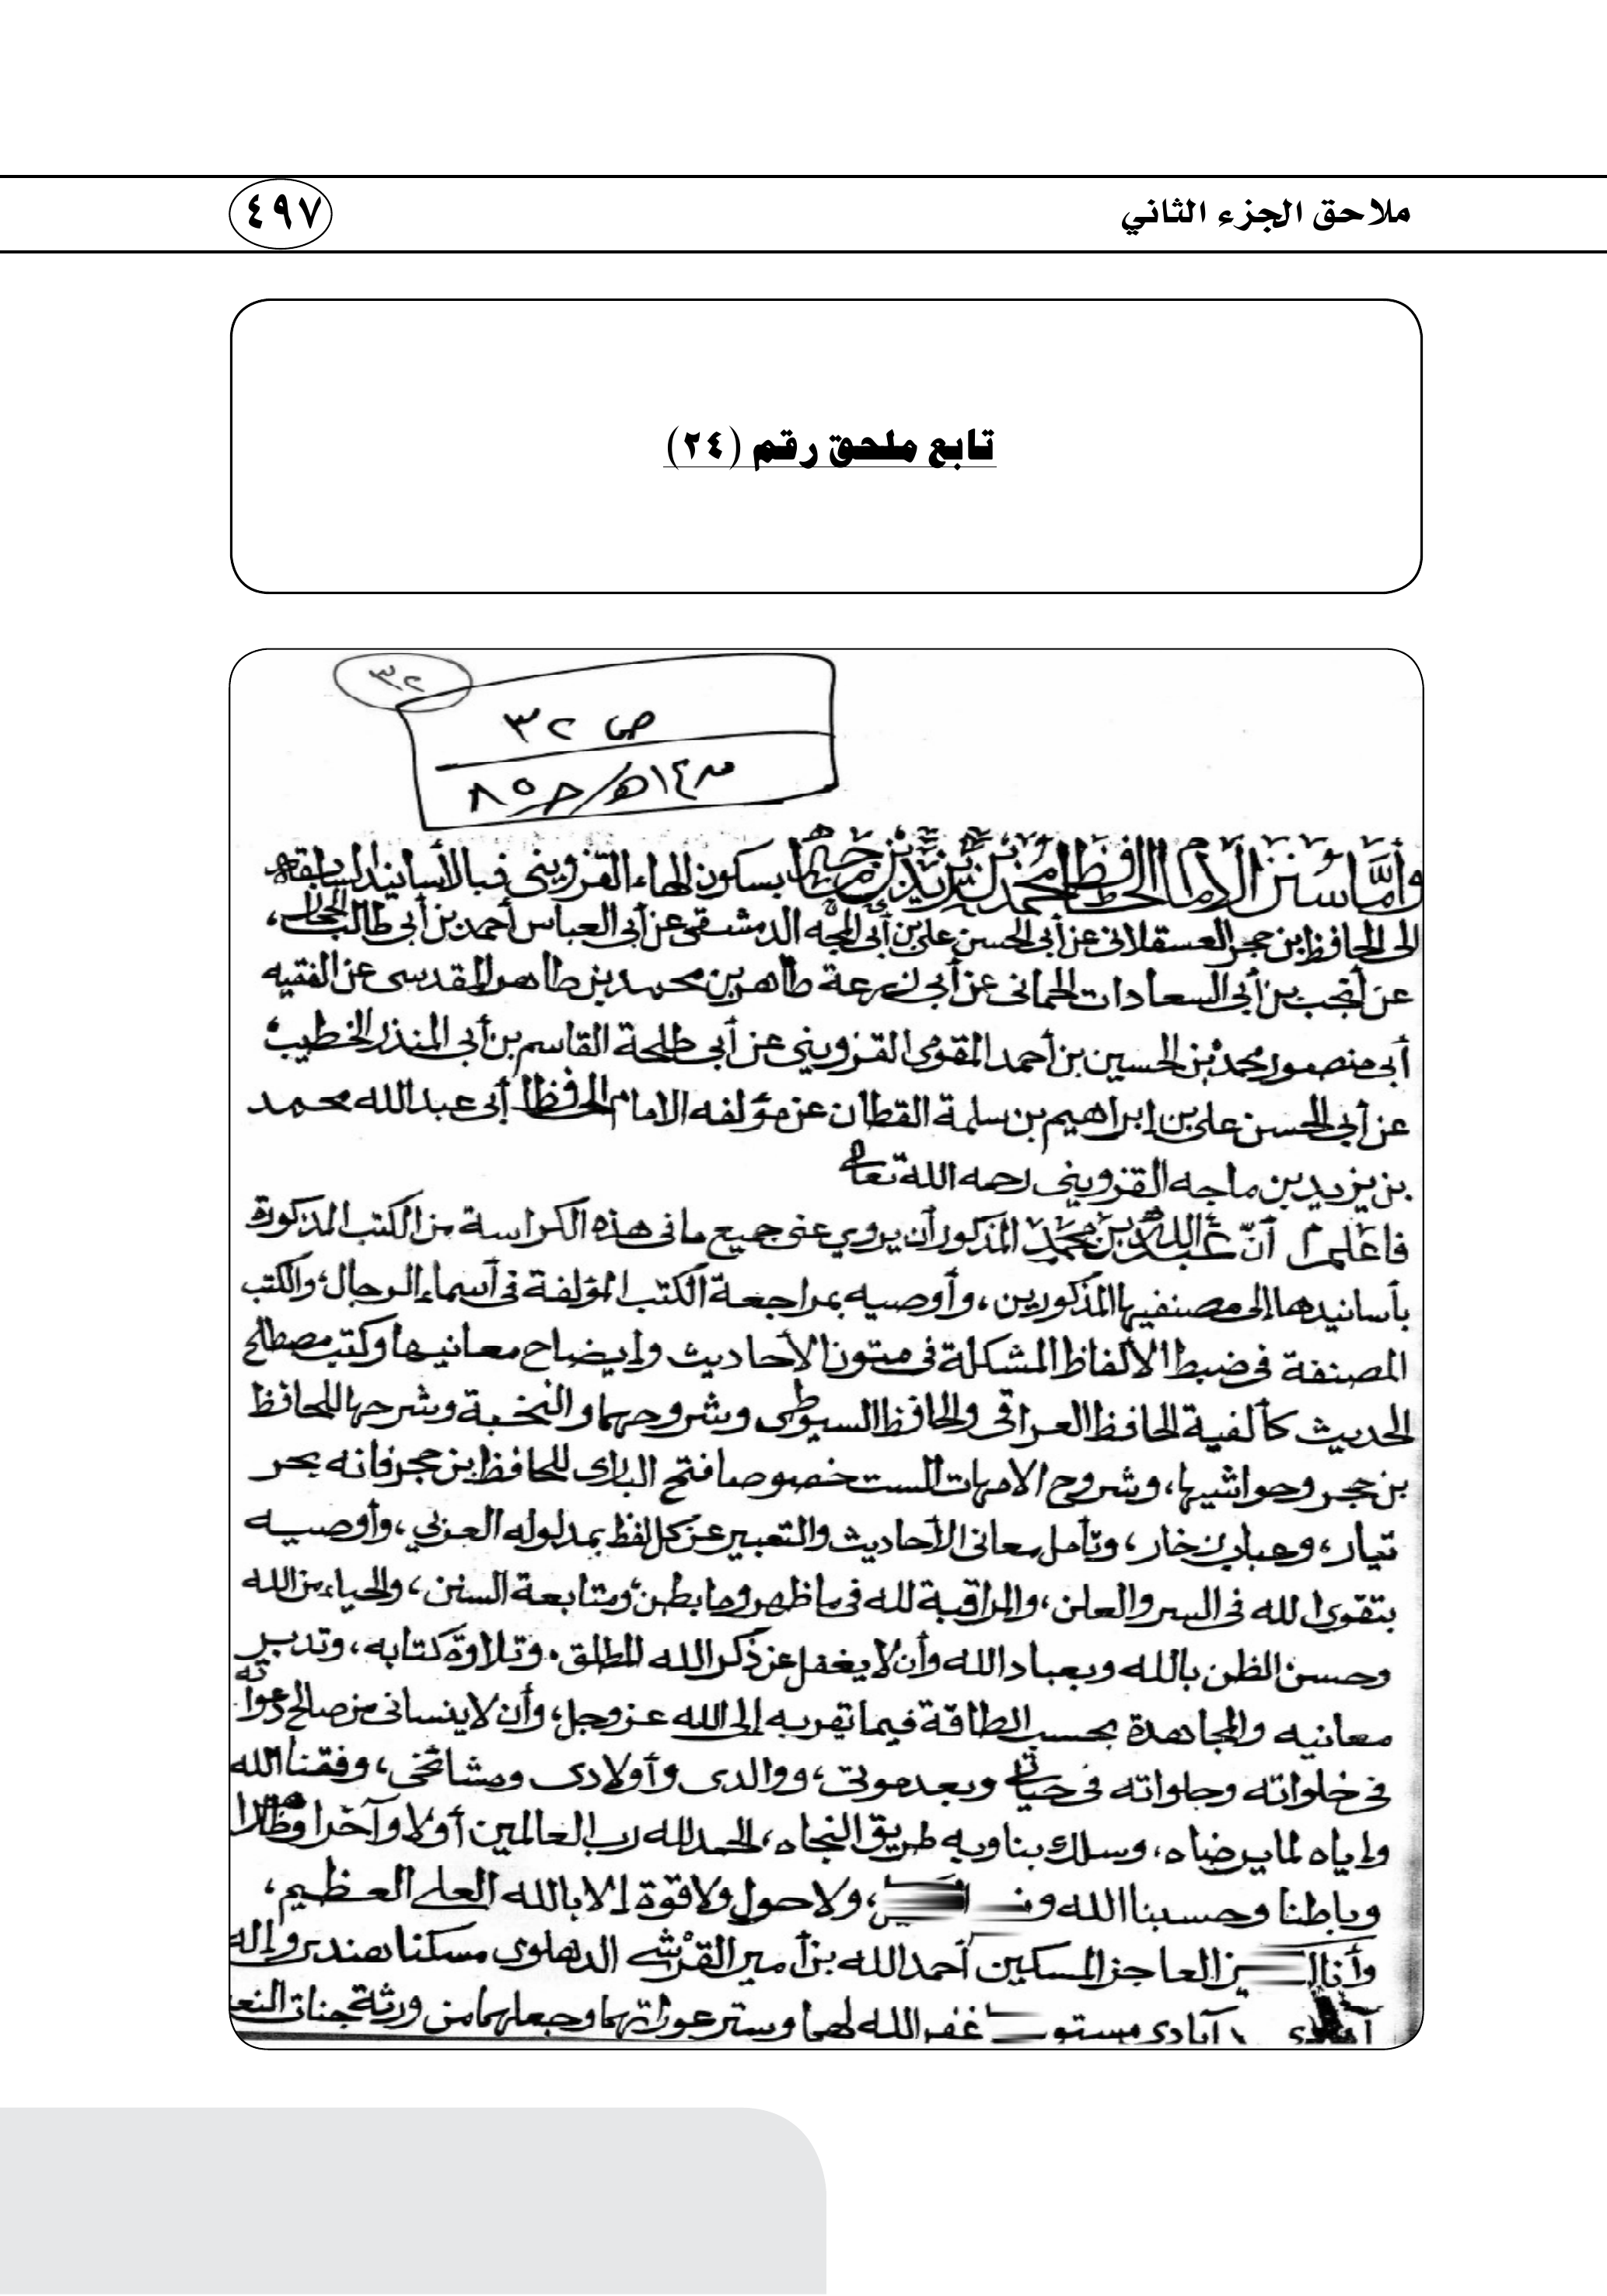 ملاحق الجزء الثاني
٤٩٧
تابع ملحق رقم (٢٤)
٣٢
ص ٣٢
وأما سنن الإمام الحافظ محمد بن يزيد بن ماجه بسكون الهاء القزويني فبالأسانيد السابقة
إلى الحافظ ابن حجر العسقلاني عن أبي الحسن علي بن أبي المجد الدمشقي عن أبي العباس أحمد بن أبي طالب الحجار،
عن أنجب بن أبي السعادات الحماني عن أبي زرعة طاهر بن محمد بن طاهر المقدسي عن الفقيه
أبي منصور محمد بن الحسين بن أحمد المقومي القزويني عن أبي طلحة القاسم بن أبي المنذر الخطيب،
عن أبي الحسن علي بن إبراهيم بن سلمة القطان عن مؤلفه الامام الحافظ أبي عبد الله محمد
بن يزيد بن ماجه القزويني رحمه الله تعالى
فاعلم أنّ عبد الله بن محمد المذكور أن يروي عني جميع ما في هذه الكراسة من الكتب المذكورة
بأسانيدها إلى مصنفيها المذكورين، وأوصيه بمراجعة الكتب المؤلفة في أسماء الرجال، والكتب
المصنفة في ضبط الألفاظ المشكلة في متون الأحاديث وإيضاح معانيها وكتب مصطلح
الحديث كألفية الحافظ العراقي والحافظ السيوطي وشروحهما والنخبة وشرحها للحافظ
بن حجر وحواشيها، وشروح الامهات الست خصوصا فتح الباري للحافظ ابن حجر فانه بحر
تيار، وعباب زخار، وتأمل معاني الأحاديث والتعبير عن كل لفظ بمدلوله العربي، وأوصيه
بتقوى الله في السر والعلن، والمراقبة لله في ما ظهر وما بطن، ومتابعة السنن، والحياء من الله
وحسن الظن بالله وبعباد الله وأن لا يغفل عن ذكر الله المطلق، وتلاوة كتابه، وتدبر
معانيه والمجاهدة بحسب الطاقة فيما تقربه إلى الله عز وجل، وأن لا ينساني من صالح دعواته
في خلواته وجلواته في حياتي وبعد موتي، ووالدي وأولادي ومشائخي، وفقنا الله
وإياه لما يرضاه، وسلك بنا وبه طريق النجاه، الحمد لله رب العالمين أولا وآخرا وظاهرا
وباطنا وحسبنا الله، ولا حول ولا قوة إلا بالله العلي العظيم،
وأنا العاجز المسكين أحمد الله بن أمير القرشي الدهلوي مسكنا
آبادي غفر الله لهما وستر عوراتهما وجعلهما من ورثة جنات